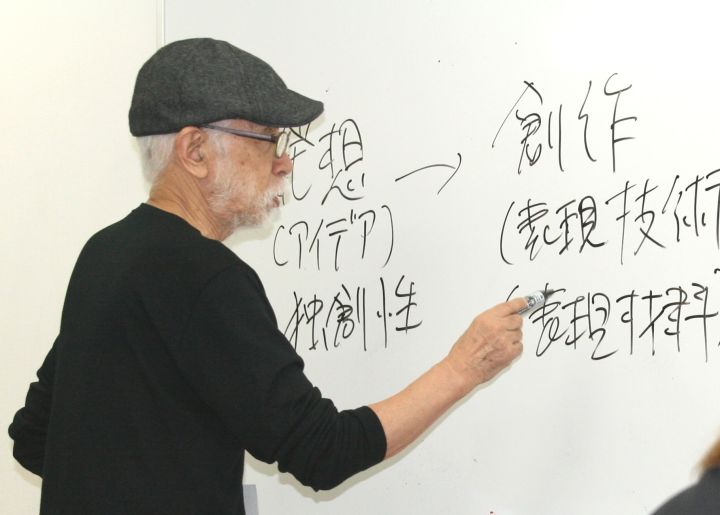 発想 → 創作
(アイデア) (表現技術
独創性 (表現材料